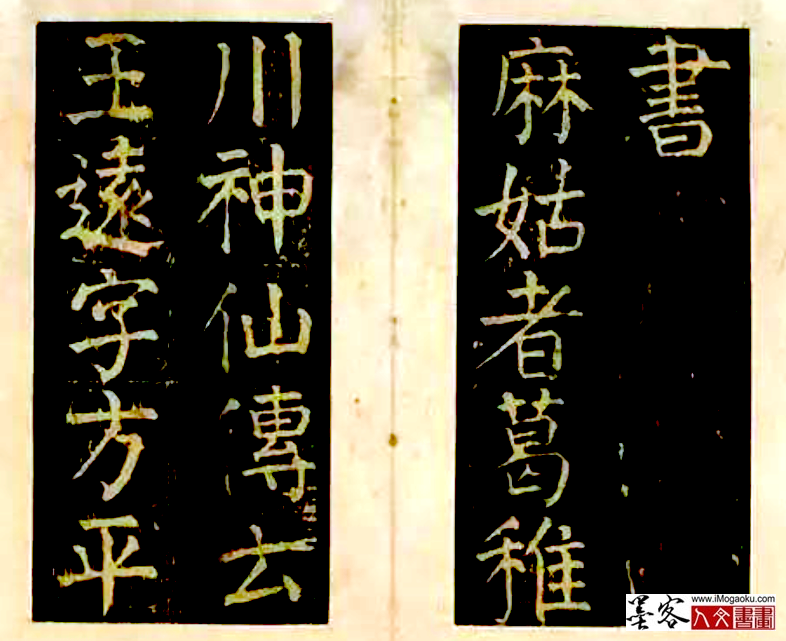 書
麻姑者葛稚
川神仙傳云
王遠字方平
www.iMogaoku.com
墨客
人文書畫